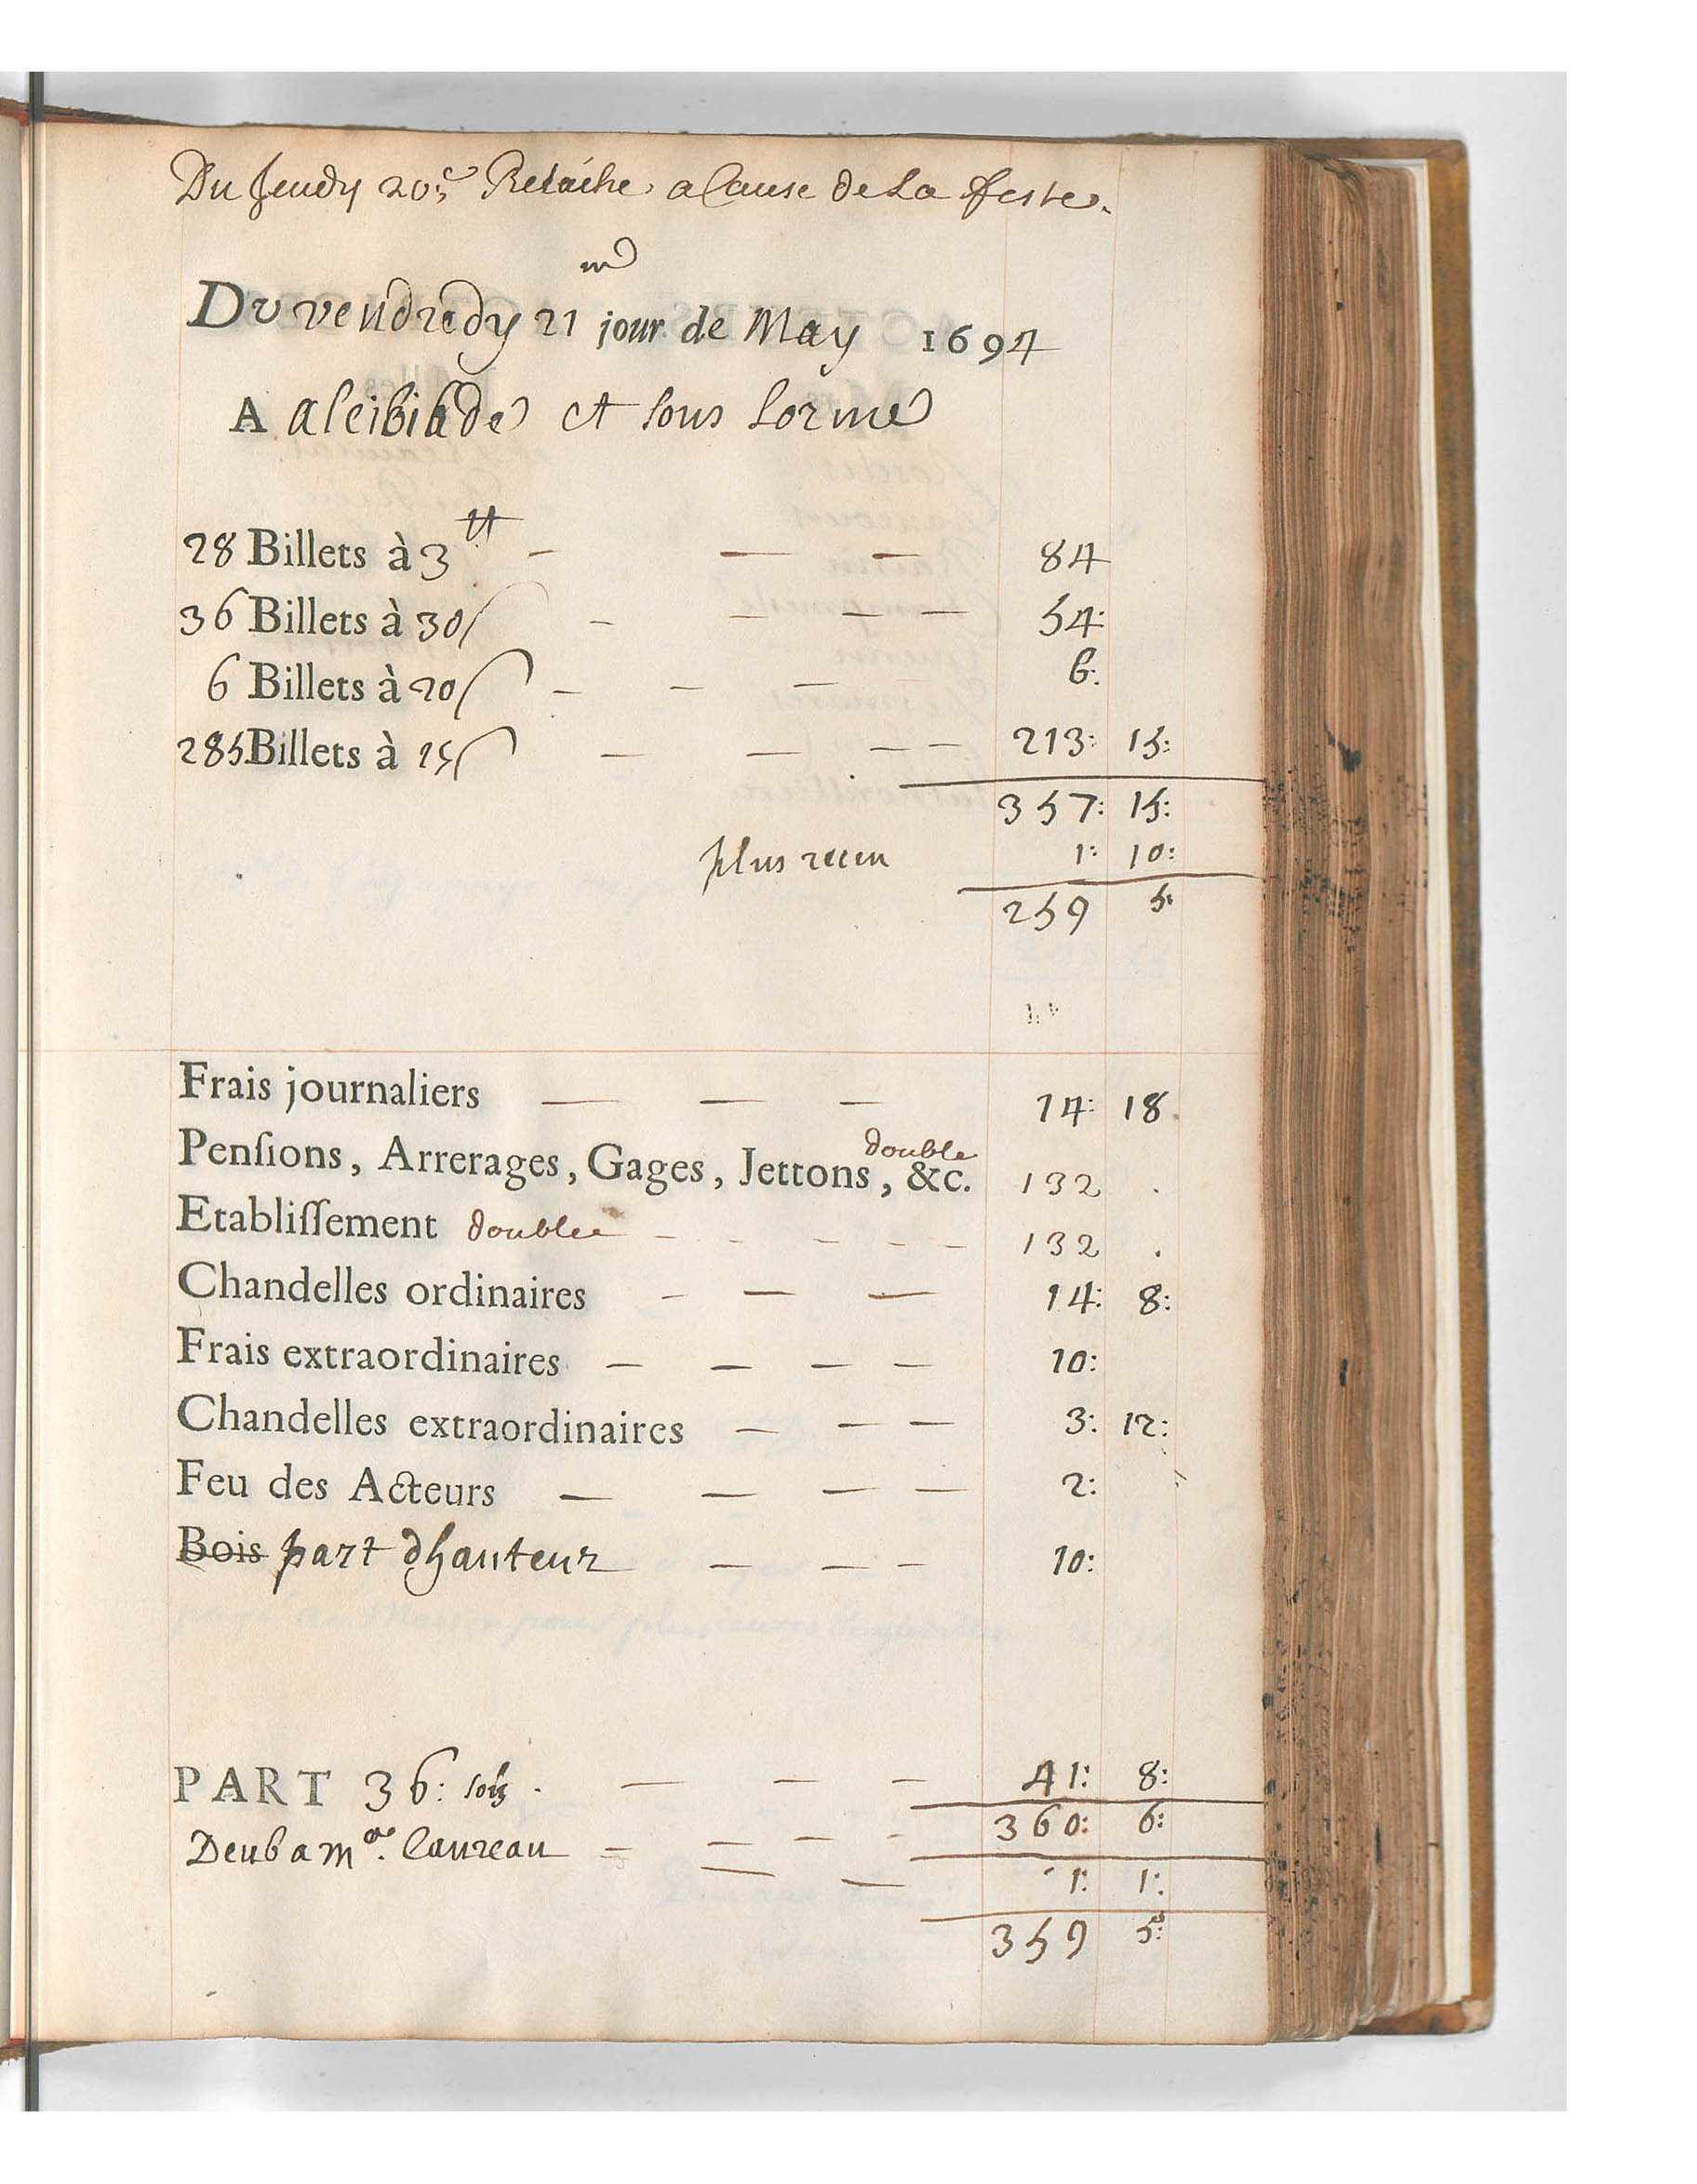 Du Jeudy 20e Relâche a Cause de La feste.
Du vendredy 21 me jour de May 1694
A alcibiade et sous Lorme
28 Billets à 3 ₶ — — — 84
36 Billets à 30 s — — — — 54:
6 Billets à 20 s — — — 6:
285 Billets à 15 s — — — — 213: 15:
357: 15:
plus receu 1: 10:
259 5:
Frais journaliers — — — 14: 18.
Penſions, Arrerages, Gages, Jettons, &c. double 132 .
Etabliſſement double — — — — — 132 .
Chandelles ordinaires — — — 14: 8:
Frais extraordinaires — — — — 10:
Chandelles extraordinaires — — — 3: 12:
Feu des Acteurs — — — — 2:
Bois part dhauteur — — — 10:
PART 36: sols — — — 41: 8:
360: 6:
Deub a mr. Laureau — — — —
— — 1: 1:
359 5: